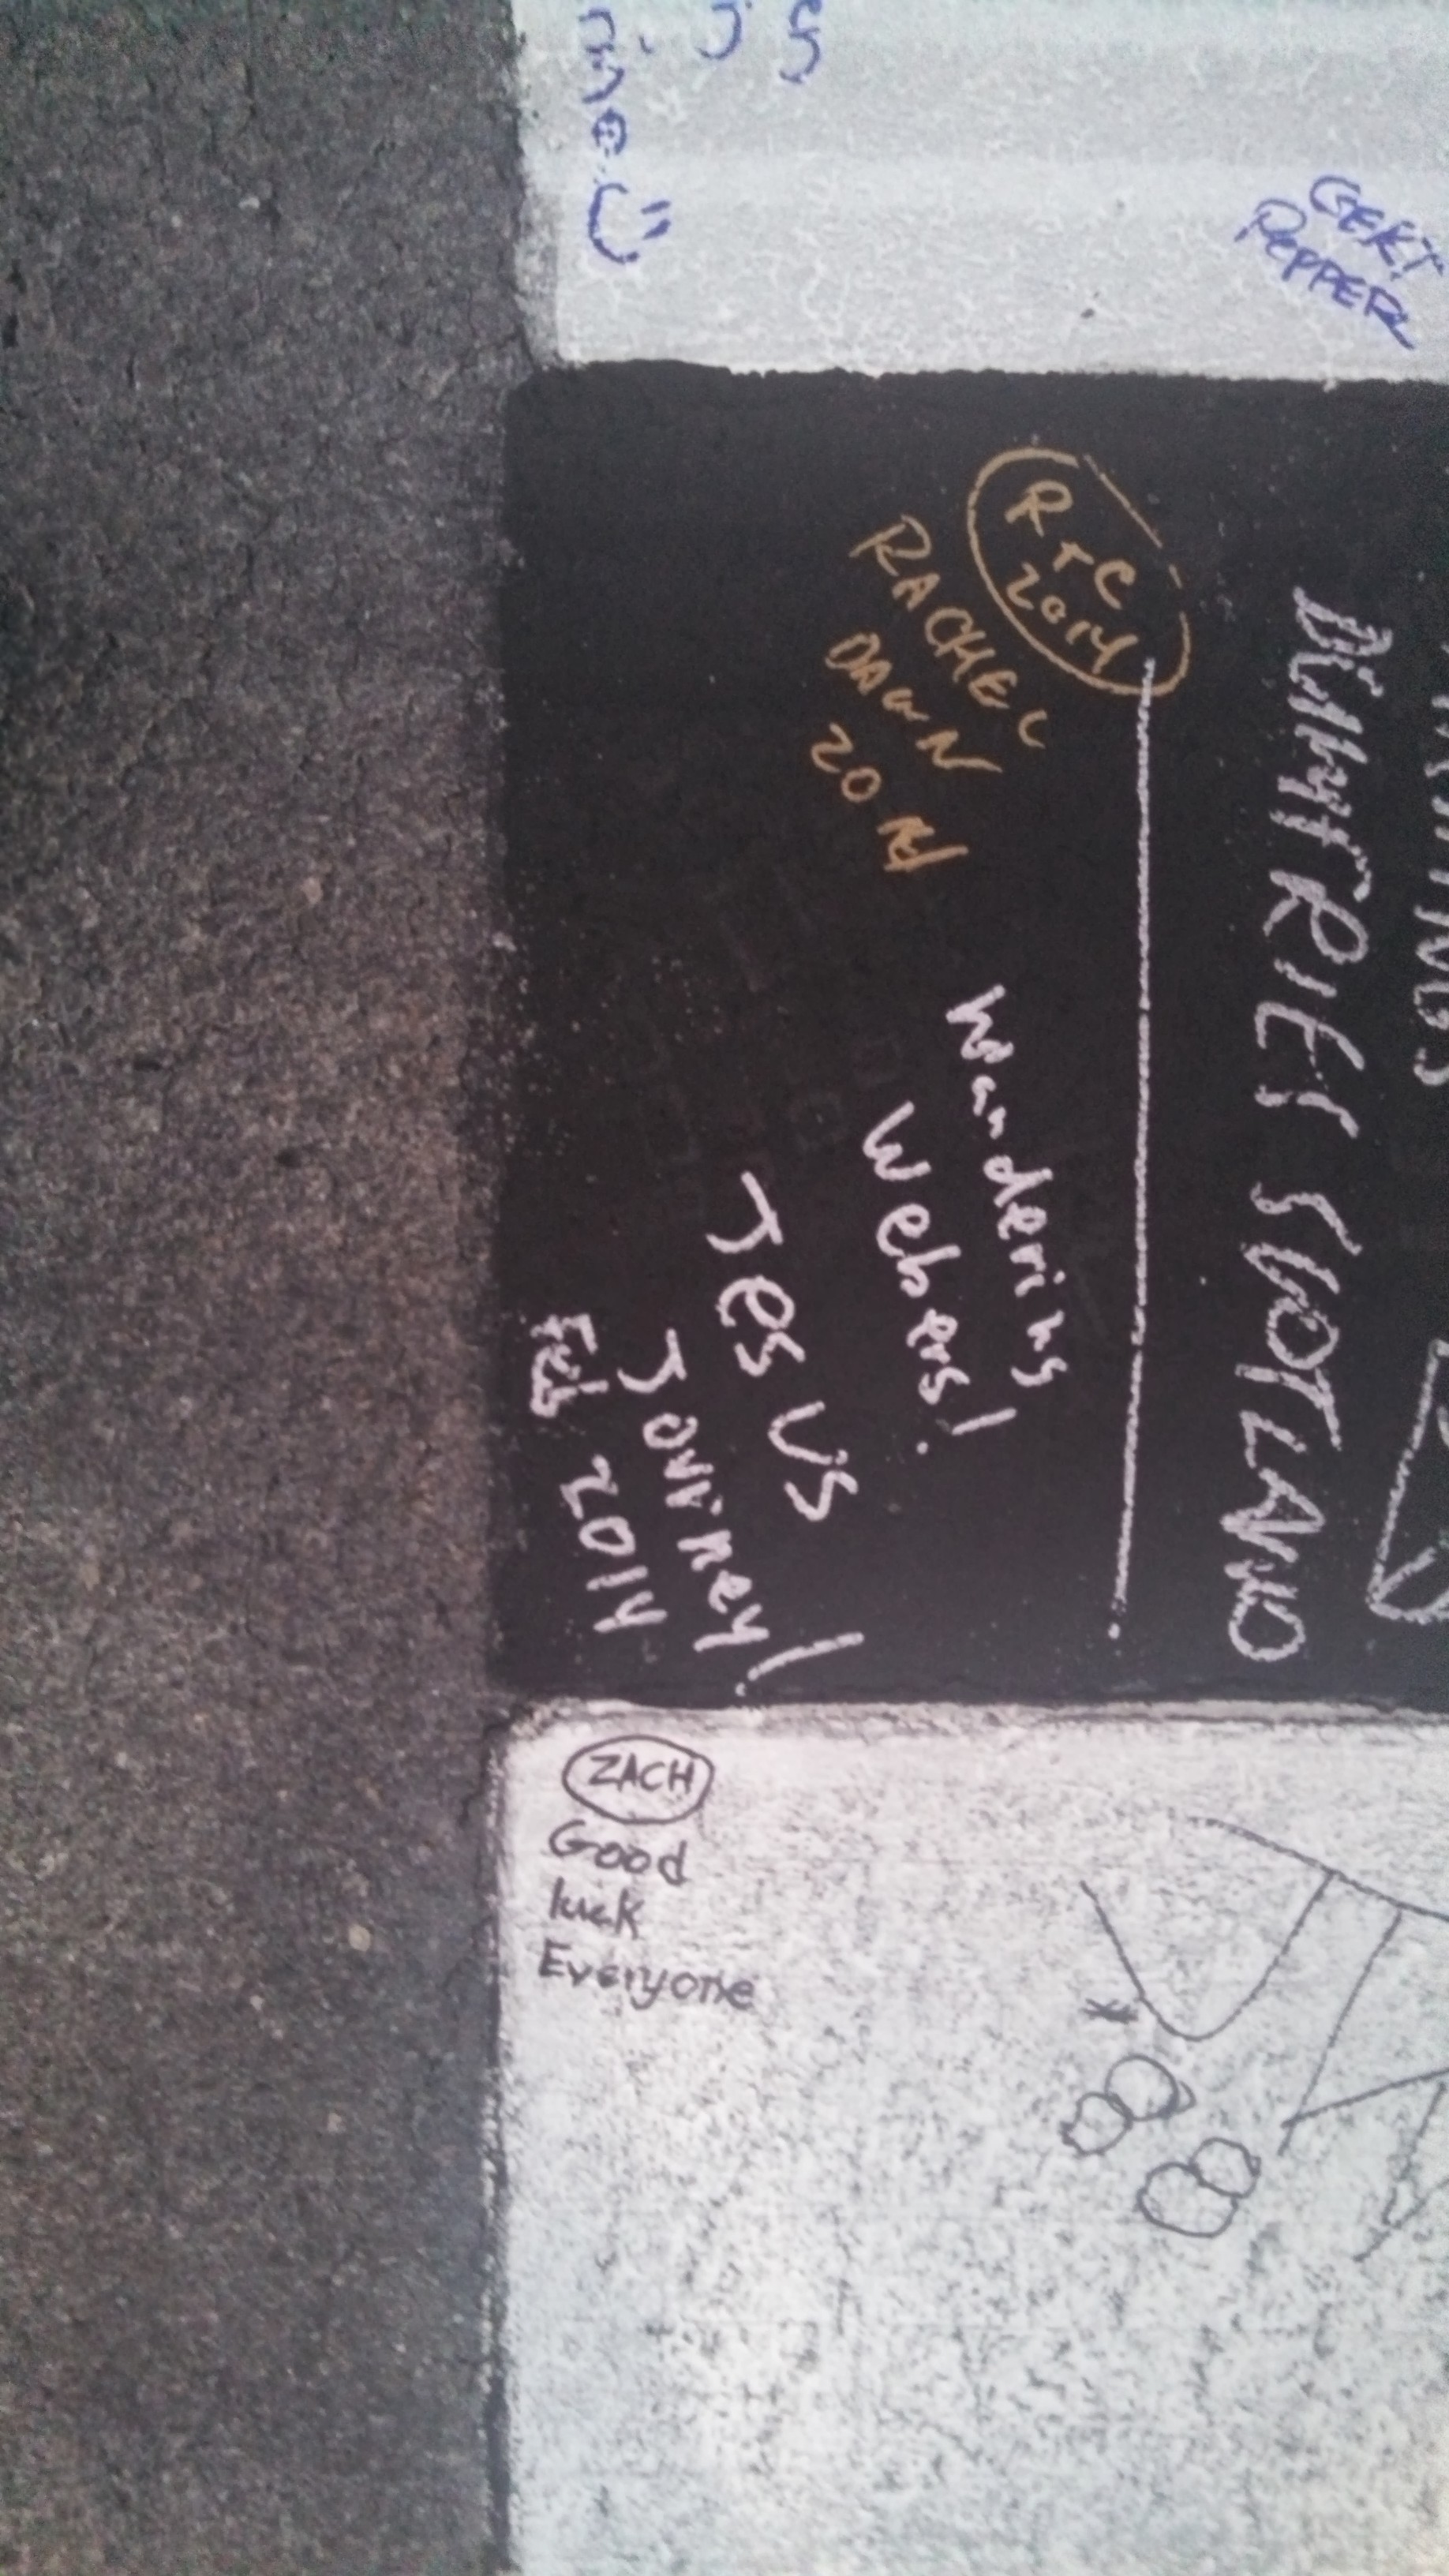 GERT
PEPPER
DUMFRIES SCOTLAND
R+C
2014
RACHEL
DAWN
20
Wandering
Webers!
Jes us
Journey!
Feb 2014
ZACH
Good
luck
Everyone